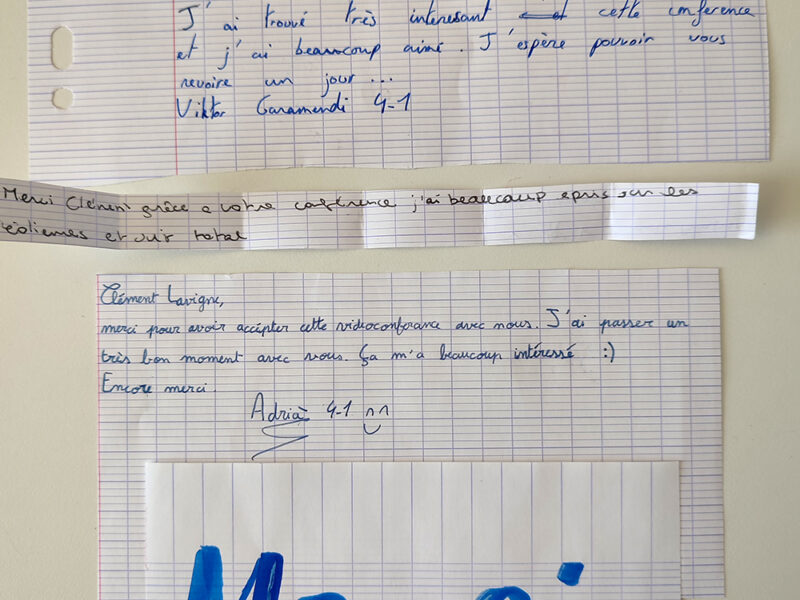 J'ai trouvé très intéresant et cette conference
et j'ai beaucoup aimé. J'espère pouvoir vous
revoire un jour...
Viktor Garamendi 4-1
Merci Clément grâce a votre conférence j'ai beaucoup apris sur les
éoliennes et sur total
Clément Lavigne,
merci pour avoir accépter cette vidéoconférance avec nous. J'ai passer un
très bon moment avec vous. Ça m'a beaucoup intéressé :)
Encore merci.
Adrià 4-1
Merci